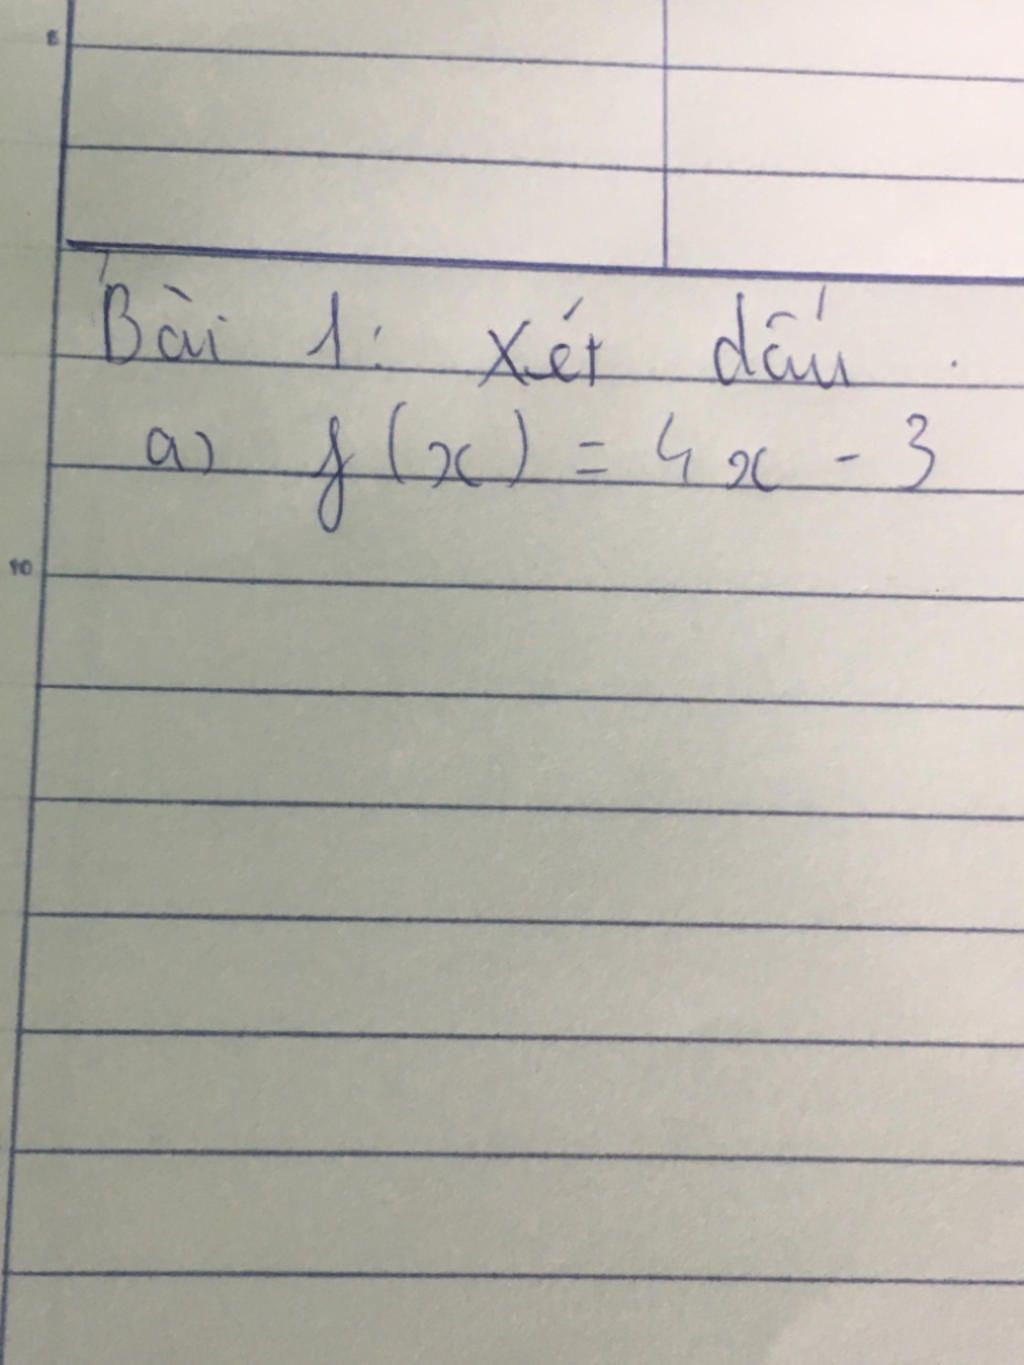 8
Bài 1: Xét dấu.
a) f(x) = 4x - 3
10